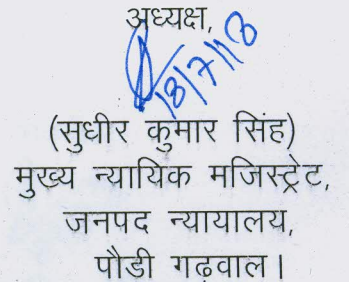 अध्यक्ष,
18/7/18
(सुधीर कुमार सिंह)
मुख्य न्यायिक मजिस्ट्रेट,
जनपद न्यायालय,
पौडी गढवाल।